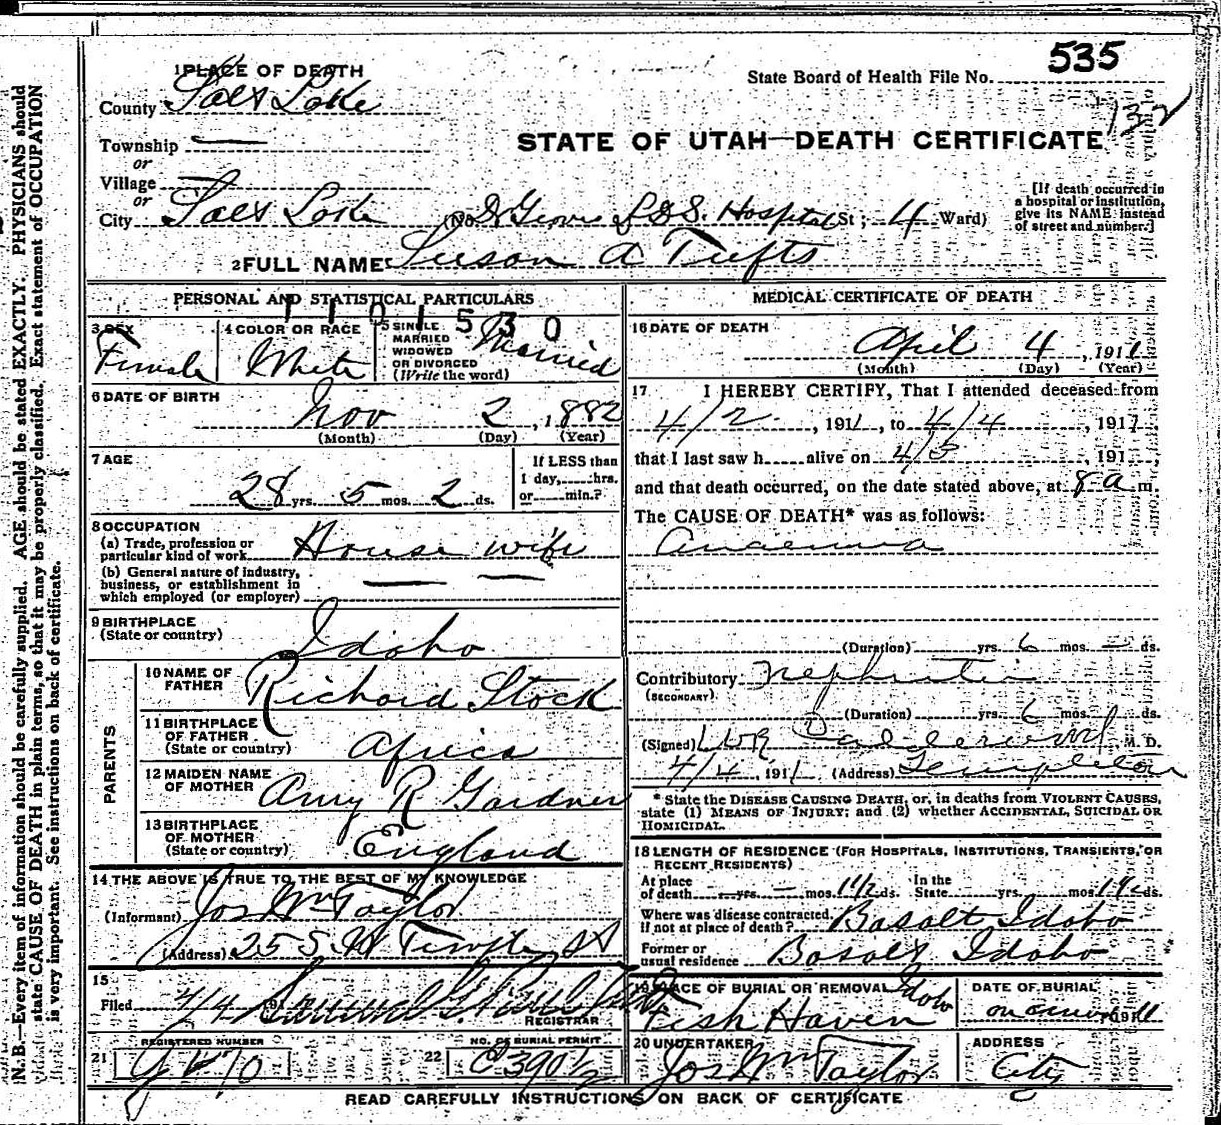 535
State Board of Health File No.
132
1 PLACE OF DEATH
County Salt Lake
STATE OF UTAH—DEATH CERTIFICATE
Township
or
Village
or
City Salt Lake (No. Dr Groves L.D.S. Hospital St; 4 Ward)
[If death occurred in a hospital or institution, give its NAME instead of street and number.]
2 FULL NAME Susan A Tufts
PERSONAL AND STATISTICAL PARTICULARS
1101530
3 SEX
Female
4 COLOR OR RACE
White
5 SINGLE
MARRIED
WIDOWED
OR DIVORCED
(Write the word)
Married
6 DATE OF BIRTH
Nov 2, 1882
(Month) (Day) (Year)
7 AGE
28 yrs. 5 mos. 2 ds.
If LESS than
1 day, hrs.
or min.?
8 OCCUPATION
(a) Trade, profession or
particular kind of work House wife
(b) General nature of industry,
business, or establishment in
which employed (or employer)
9 BIRTHPLACE
(State or country)
Idaho
PARENTS
10 NAME OF
FATHER
Richard Stock
11 BIRTHPLACE
OF FATHER
(State or country)
Africa
12 MAIDEN NAME
OF MOTHER
Amy R Gardner
13 BIRTHPLACE
OF MOTHER
(State or country)
England
14 THE ABOVE IS TRUE TO THE BEST OF MY KNOWLEDGE
(Informant) Jos Wm Taylor
(Address) 25 S. W Temple St
15
Filed 4/4 191
REGISTRAR
REGISTERED NUMBER
21
NO. OF BURIAL PERMIT
22 C390 1/2
MEDICAL CERTIFICATE OF DEATH
16 DATE OF DEATH
April 4, 1911
(Month) (Day) (Year)
17 I HEREBY CERTIFY, That I attended deceased from
4/2, 1911, to 4/4, 1911,
that I last saw h alive on 4/3, 191,
and that death occurred, on the date stated above, at 8 a m.
The CAUSE OF DEATH* was as follows:
Anaemia
(Duration) yrs. 6 mos. ds.
Contributory Nephritis
(SECONDARY)
(Duration) yrs. 6 mos. ds.
(Signed) Calderwood M. D.
4/4, 1911 (Address) Templeton
* State the DISEASE CAUSING DEATH, or, in deaths from VIOLENT CAUSES,
state (1) MEANS OF INJURY; and (2) whether ACCIDENTAL, SUICIDAL OR
HOMICIDAL.
18 LENGTH OF RESIDENCE (FOR HOSPITALS, INSTITUTIONS, TRANSIENTS, OR
RECENT RESIDENTS)
At place
of death yrs. mos. 1 1/2 ds.
In the
State yrs. mos. 1 1/2 ds.
Where was disease contracted,
if not at place of death? Basalt Idaho
Former or
usual residence Basalt Idaho
19 PLACE OF BURIAL OR REMOVAL Idaho
Fish Haven
DATE OF BURIAL
on arrival 1911
20 UNDERTAKER
Jos Wm Taylor
ADDRESS
City
READ CAREFULLY INSTRUCTIONS ON BACK OF CERTIFICATE
N. B.—Every item of information should be carefully supplied. AGE should be stated EXACTLY. PHYSICIANS should
state CAUSE OF DEATH in plain terms, so that it may be properly classified. Exact statement of OCCUPATION
is very important. See instructions on back of certificate.